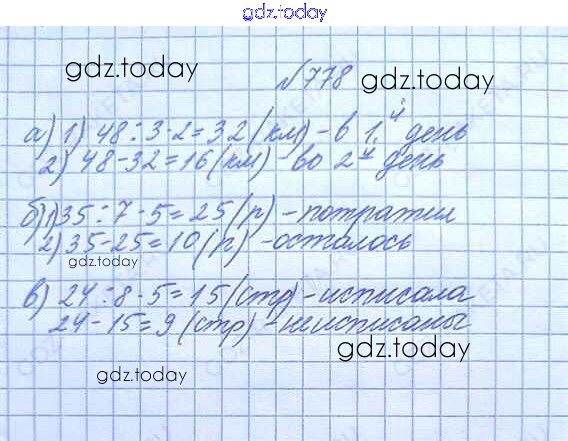 gdz.today
gdz.today №778 gdz.today
а) 1) 48÷3·2=32 (км) - в 1й день
2) 48-32=16 (км) во 2й день
б) 1) 35÷7·5=25 (р) - потратил
2) 35-25=10 (р) - осталось
gdz.today
в) 24÷8·5=15 (стр) - исписала
24-15=9 (стр) - неисписаны
gdz.today
gdz.today